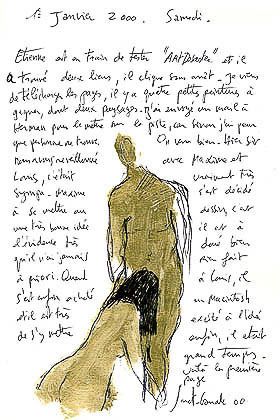 1. Janvier 2000. Samedi.
Etienne est en train de tester "Art Director" et il
a trouvé deux liens, il clique sans arrêt. Je viens
de télécharger les pages, il y a quatre petites peintures à
gagner, dont deux paysages. J'ai envoyé un mail à
herman pour le mettre sur la piste, car sinon j'ai peur
que personne ne trouve. On verra bien. Hier soir
nous avons réveillonné avec Maxime et
Louis, c'était vraiment très
sympa. Maxime s'est décidé
à se mettre au dessin, c'est
une très bonne idée il est à
l'évidence très doué bien
qu'il n'ai jamais rien fait
à priori. Quant à Louis, il
s'est enfin acheté un Macintosh
et il est très excité à l'idée
de s'y mettre enfin, il était
grand temps.
Voilà la première
page
00